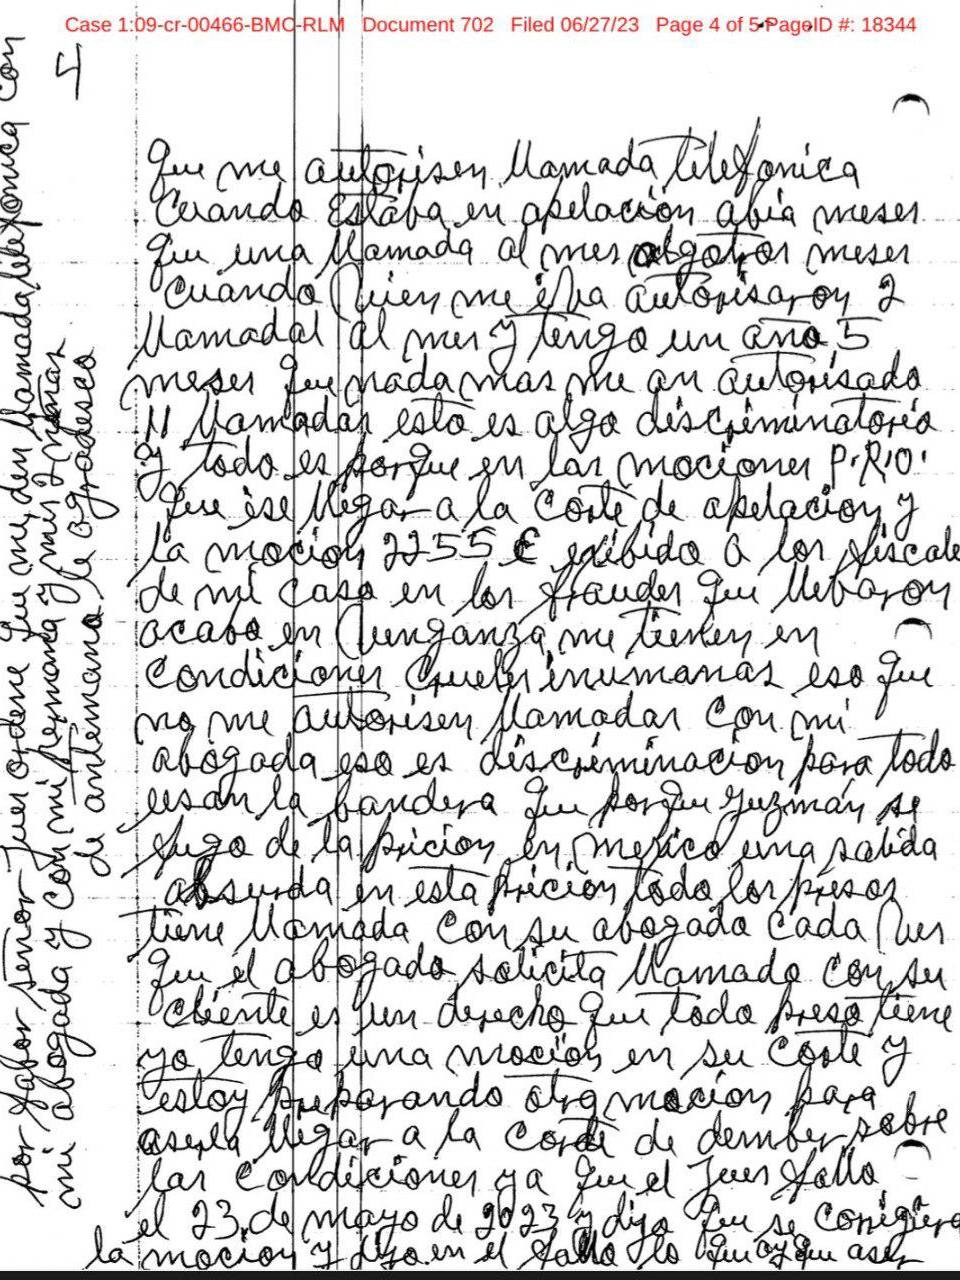 Case 1:09-cr-00466-BMC-RLM Document 702 Filed 06/27/23 Page 4 of 5 PageID #: 18344
4
Que me autorisen llamada telefonica
Cuando Estaba en apelación abia meses
que una llamada al mes algotros meses
Cuando bien me iva autorisaron 2
llamadas al mes y tengo un año 5
meses que nada mas me an autorisado
11 llamadas esto es algo discriminatorio
y todo es porque en las mociones P.R.O.
que ise llegar a la Corte de apelacion y
la mocion 2255 E exibido a los fiscale
de mi caso en los fraudes que llebaron
acabo en Venganza me tienen en
Condiciones Crueles inumanas eso que
no me autorisen llamadas con mi
abogada eso es discriminacion para todo
usan la bandera que porque Guzmán se
fugo de la pricion en mexico una salida
absurda en esta pricion todo los presos
tiene llamada con su abogado cada ves
que el abogado solicita llamada con su
cliente es un derecho que todo preso tiene
yo tengo una mocion en su Corte y
estoy preparando otra mocion para
aserla llegar a la Corte de dember sobre
las Condiciones ya que el Jues fallo
el 23 de mayo de 2023 y dijo que se corigiera
la mocion y dijo en el fallo lo que ay que aser
por fabor señor Jues ordene que me den llamada telefonica con
mi abogada y con mi hermana y mis 2 niñas
de antemano le agradesco